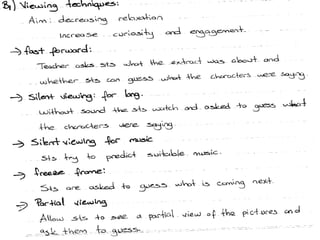 B,) Viewing techniques:
Aim: decreasing relaxation
Increase curiosity and engagement.
→ fast forward:
Teacher asks sts what the extract was about and
whether sts can guess what the characters were saying
→ Silent viewing: for lang.
Without sound the sts watch and asked to guess what
the characters were saying
→ Silent viewing for music
Sts try to predict suitable music.
→ freeze frame:
Sts are asked to guess what is coming next.
→ Partial viewing
Allow sts to see a partial view of the pictures and
ask them to guess.